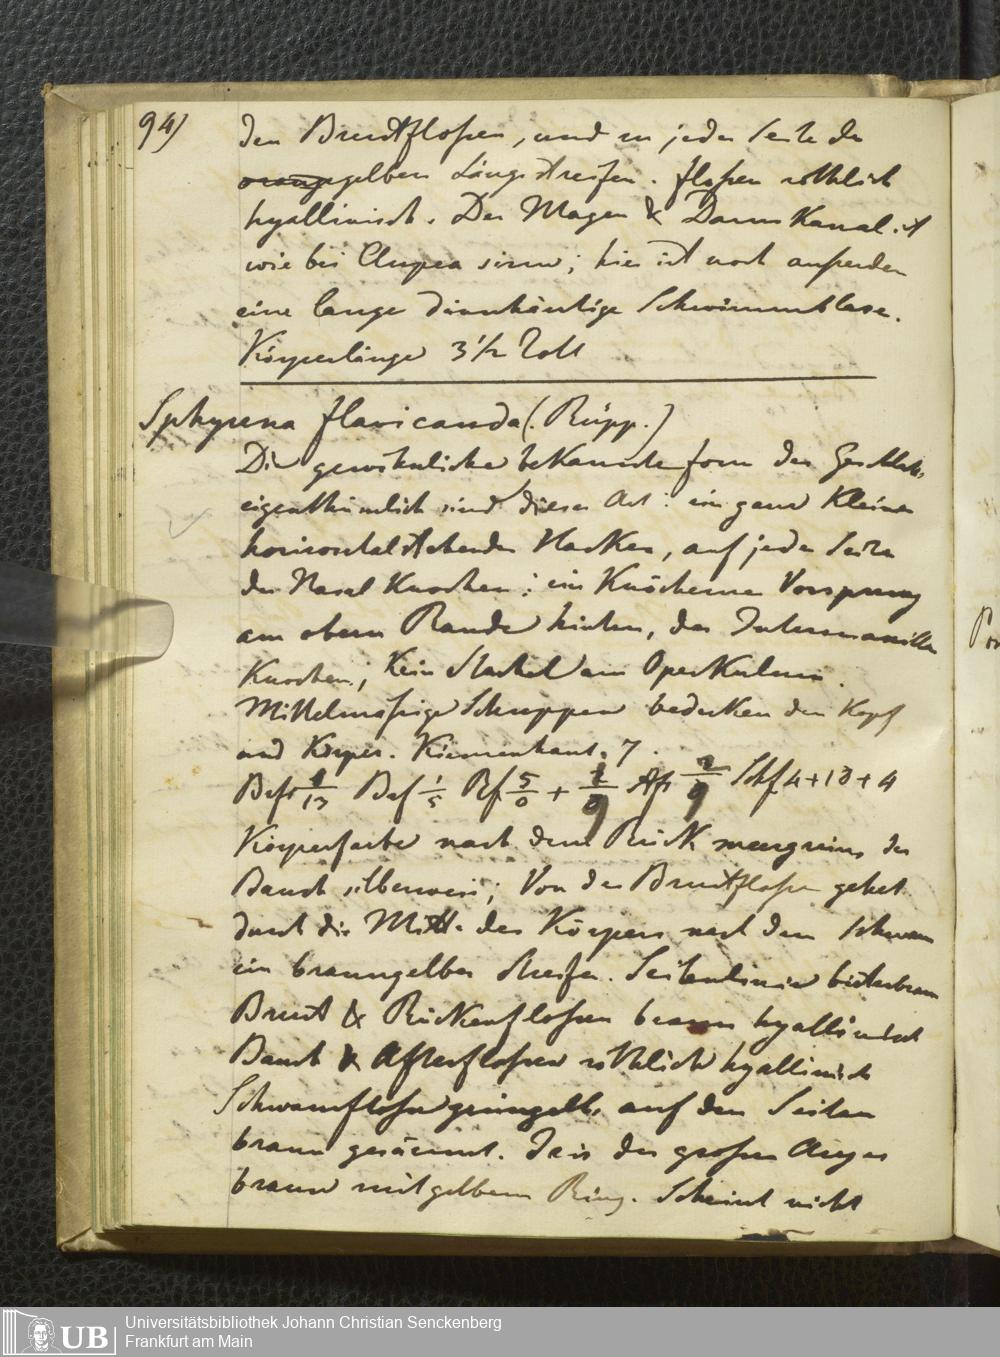 94)
den Brustflossen, und zu jeder Seite der
orangegelben Längsstreifen. Flossen röthlich
hyallinisch. Der Magen & Darmkanal ist
wie bei Clupea sirm; hier ist noch ausserdem
eine lange dünnhäutige Schwimmblase.
Körperlänge 3 1/2 Zoll
Sphyrena flavicauda (Rüpp.)
Die gewöhnliche bekannte form des Geschlechts,
eigenthümlich sind dieser Art: ein ganz kleiner
horizontal stehender Hacken, auf jeder Seite
der Nasal Knochen; ein Knöcherner Vorsprung
am obern Rande hinten, des Intermaxillar
Knochen; Kein Stachel am Operkulum.
Mittelmässige Schuppen bedecken den Kopf
und Körper. Kiemenhaut. 7.
Bstf 1/13 Bcf 1/5 Rf 5/0 + 1/9 Af 2/9 Schf 4+13+4
Körperfarbe nach dem Rück meergrün, der
Bauch silberweiss; Von der Brustflosse gehet
durch die Mitte des Körpers nach dem Schwanz
ein braungelber Streifen. Seitenlinie bisterbraun
Brust & Rückenflossen braun hyallinisch
Bauch & Afterflossen röthlich hyallinisch
Schwanzflosse grüngelb, auf den Seiten
braun gesäumt. Iris des grossen Auges
braun mit gelbem Ring. Scheint nicht
UB
Universitätsbibliothek Johann Christian Senckenberg
Frankfurt am Main